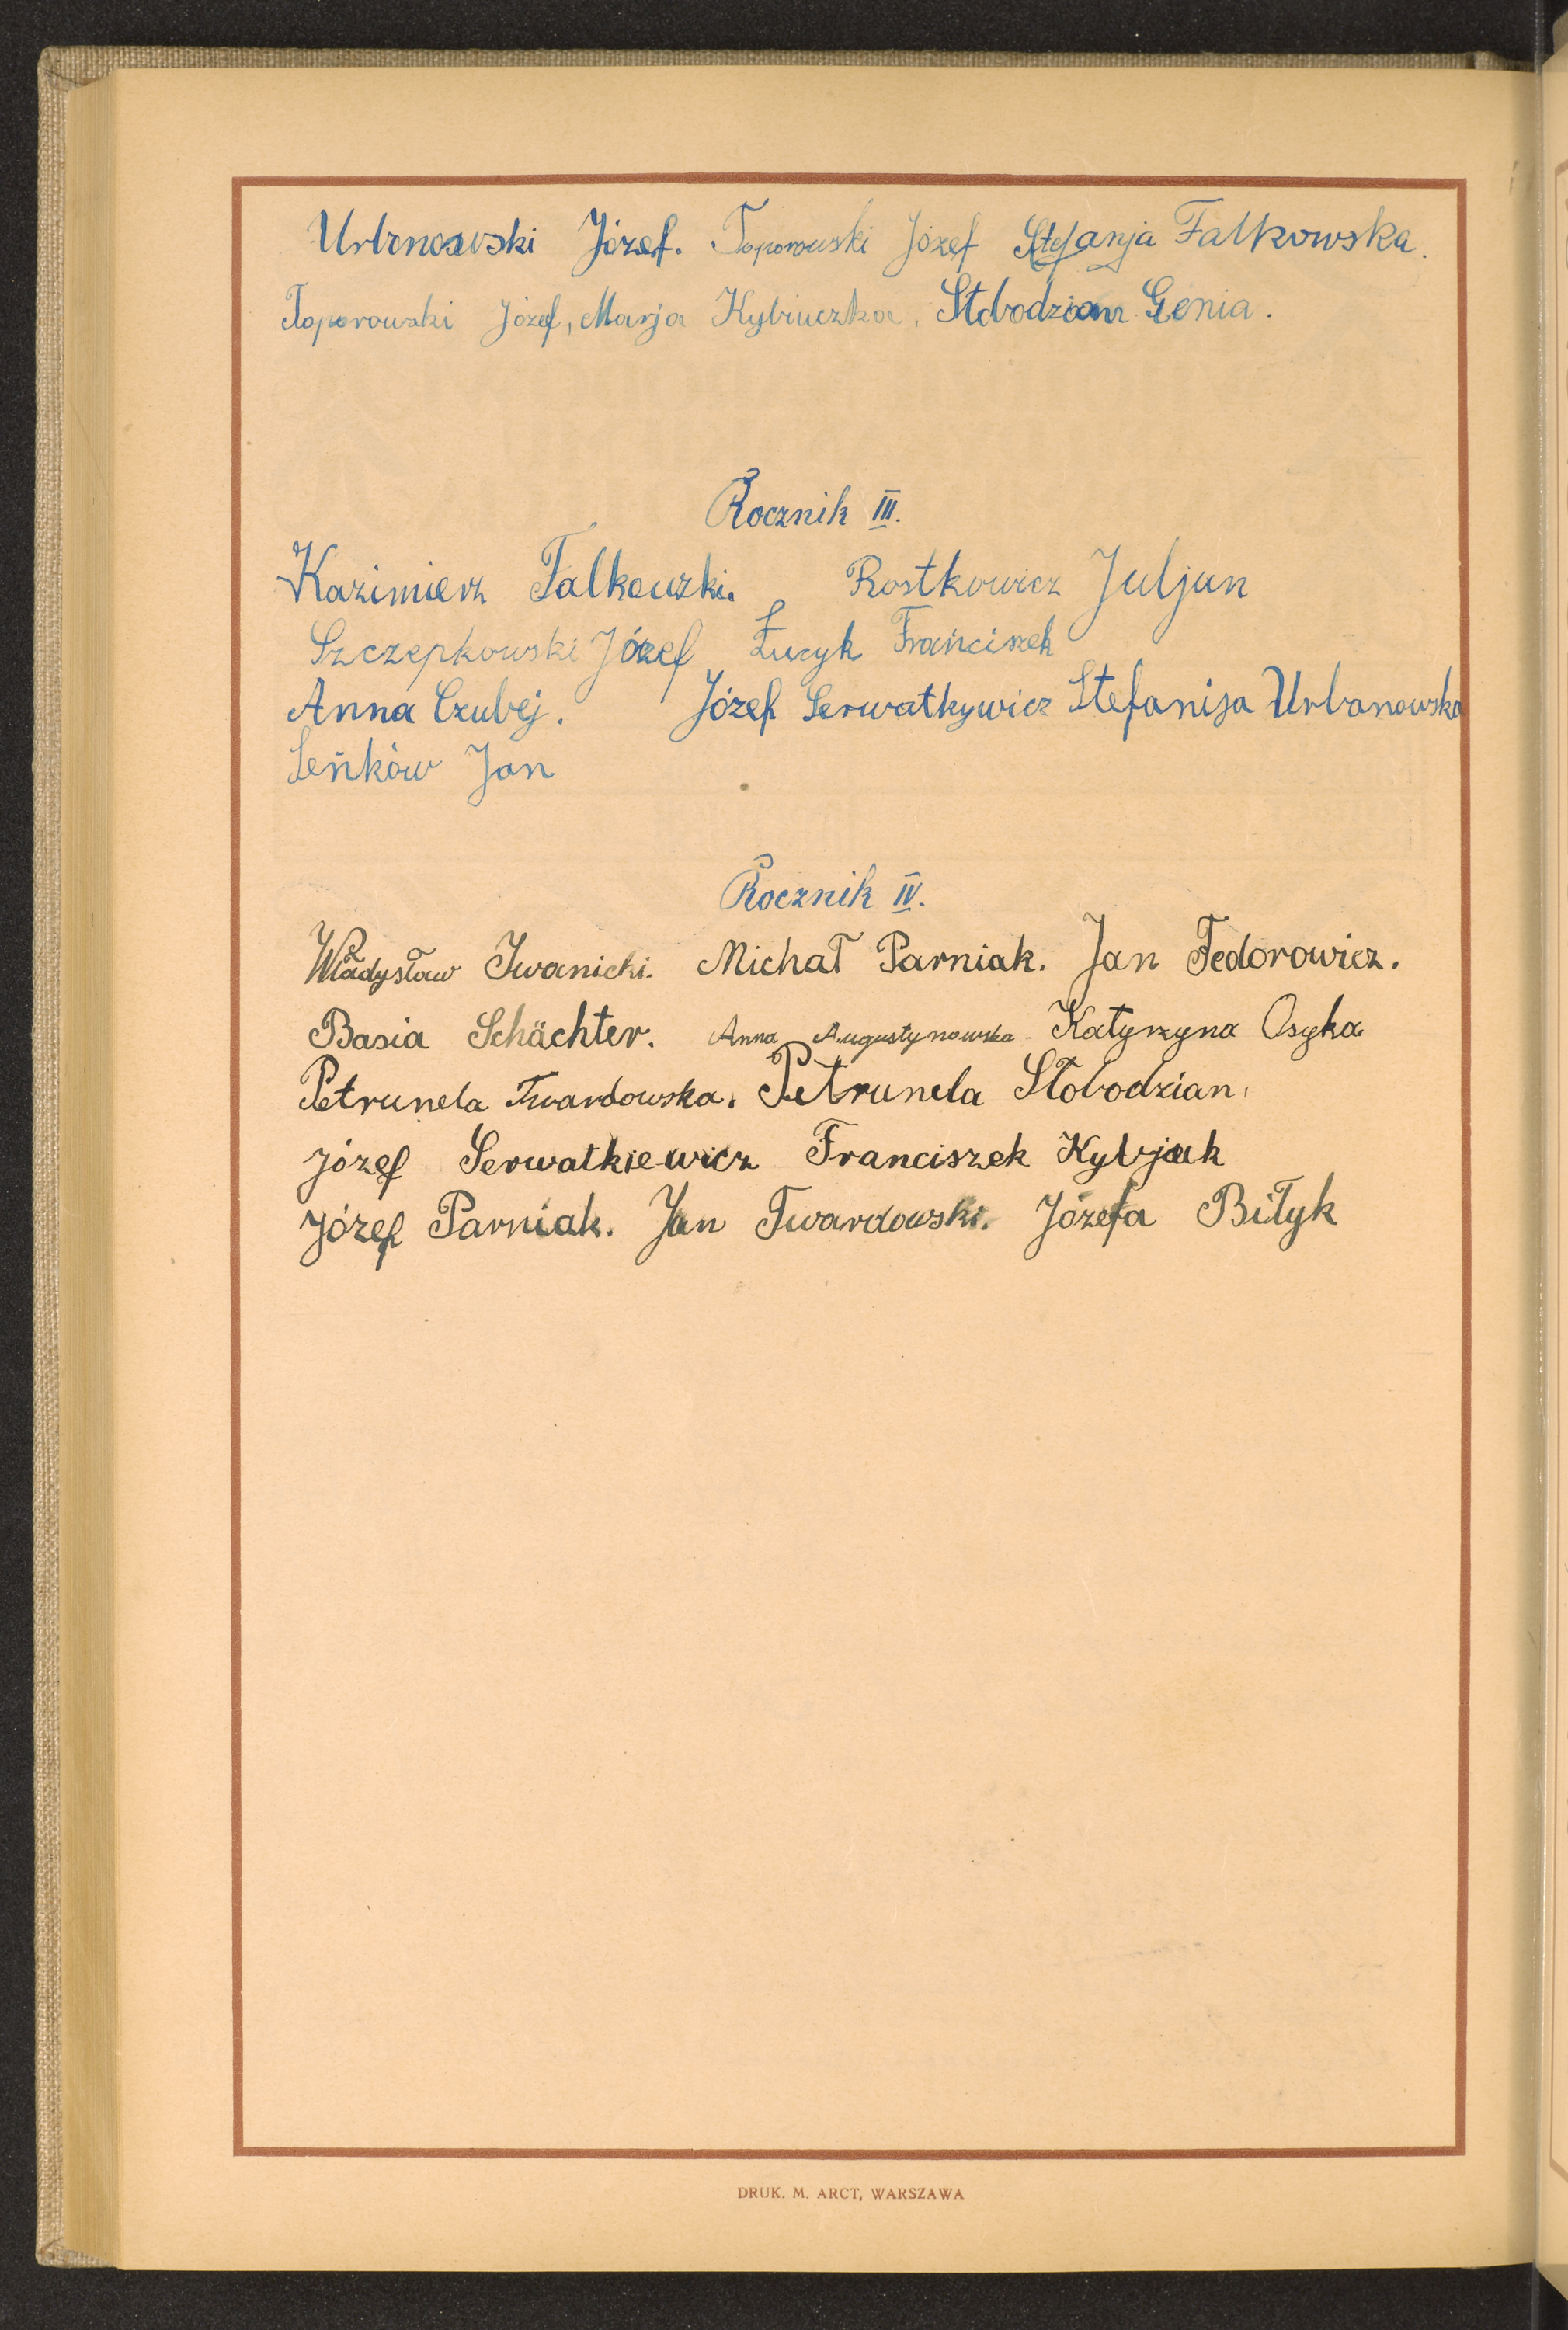 Urbnowski Józef. Toporowski Józef Stefanja Falkowska.
Toporowski Józef, Marja Kybiuczka, Stobodzian Genia.
Rocznik III.
Kazimierz Falkowski. Rostkowicz Juljan
Szczepkowski Józef Łucyk Franciszek
Anna Czubej. Józef Serwatkywicz Stefanija Urbanowska
Seńków Jan
Rocznik IV.
Władysław Iwanicki. Michał Parniak. Jan Fedorowicz.
Basia Schächter. Anna Augustynowska Katyrzyna Osyka
Petrunela Twardowska. Petrunela Słobodzian.
Józef Serwatkiewicz Franciszek Kybjak
Józef Parniak. Jan Twardowski. Józefa Biłyk
DRUK. M. ARCT, WARSZAWA